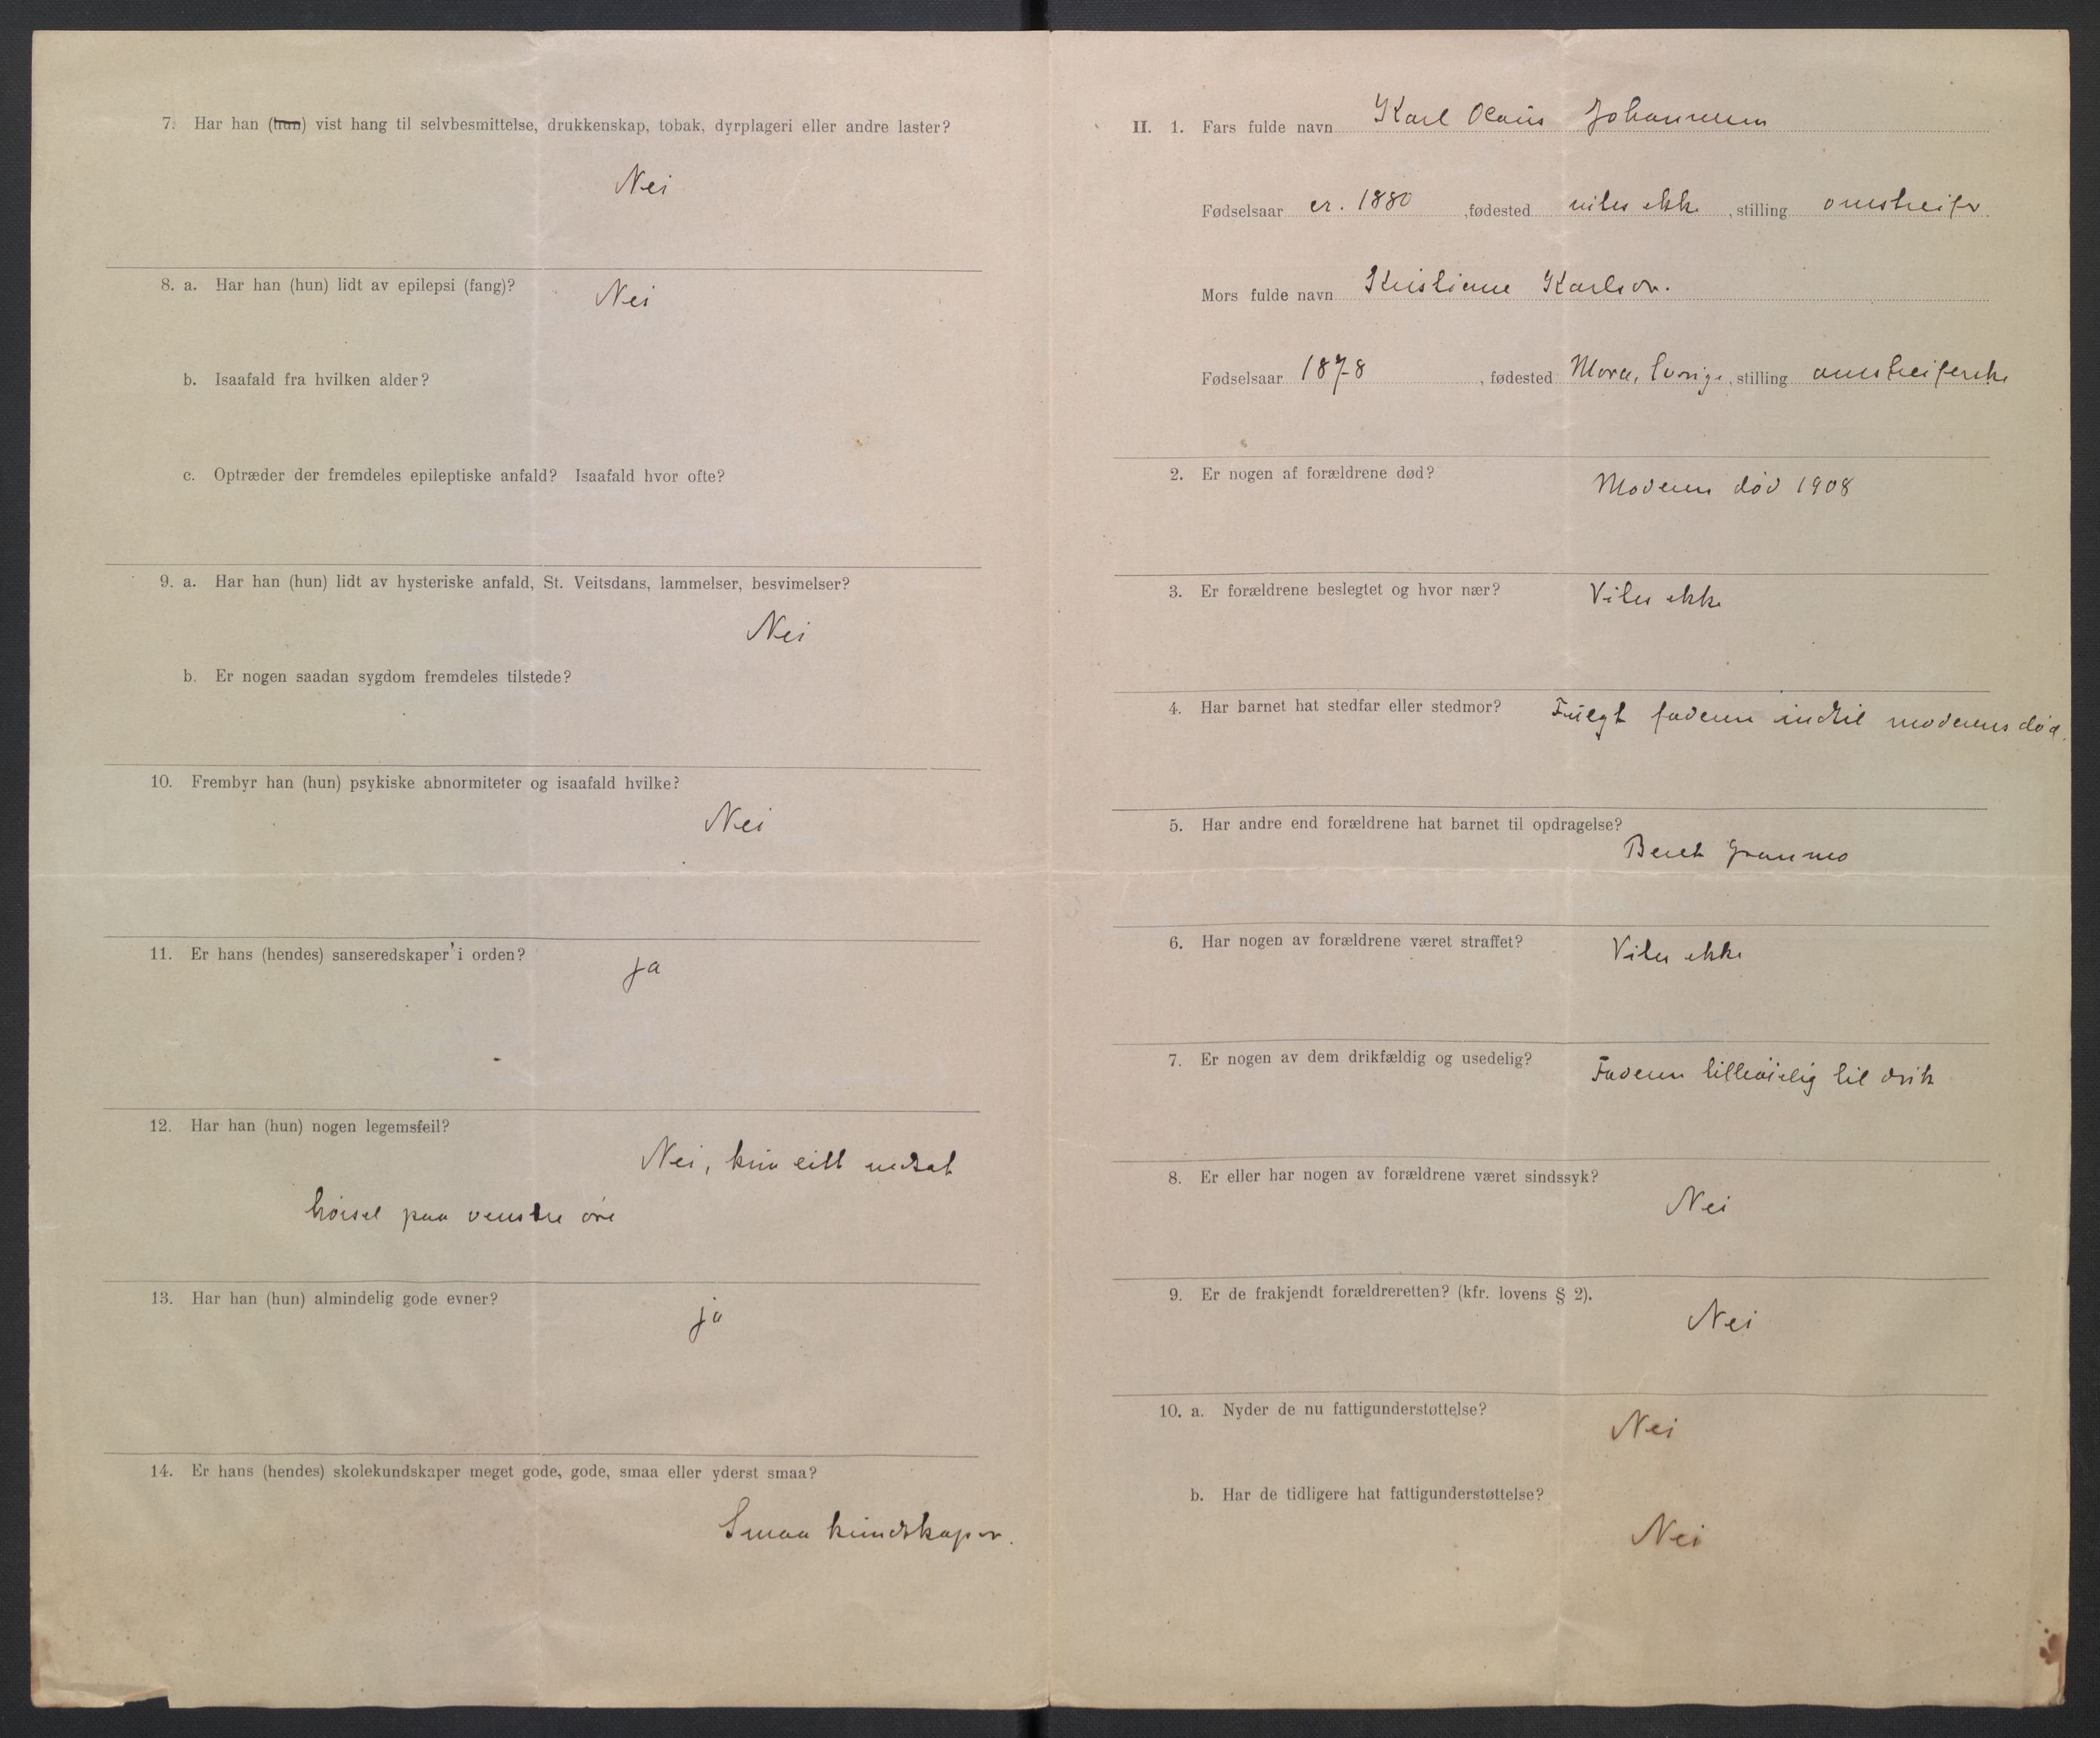 7. Har han (hun) vist hang til selvbesmittelse, drukkenskap, tobak, dyrplageri eller andre laster?
Nei
8. a. Har han (hun) lidt av epilepsi (fang)? Nei
b. Isaafald fra hvilken alder?
c. Optræder der fremdeles epileptiske anfald? Isaafald hvor ofte?
9. a. Har han (hun) lidt av hysteriske anfald, St. Veitsdans, lammelser, besvimelser?
Nei
b. Er nogen saadan sygdom fremdeles tilstede?
10. Frembyr han (hun) psykiske abnormiteter og isaafald hvilke?
Nei
11. Er hans (hendes) sanseredskaper i orden?
ja
12. Har han (hun) nogen legemsfeil?
Nei, kun litt nedsat
hørsel paa venstre øre
13. Har han (hun) almindelig gode evner?
ja
14. Er hans (hendes) skolekundskaper meget gode, gode, smaa eller yderst smaa?
Smaa kundskaper.
II. 1. Fars fulde navn Karl Olaus Johannesen
Fødselsaar cr. 1880, fødested vites ikke, stilling omstreifer.
Mors fulde navn Kristiane Karlson.
Fødselsaar 1878, fødested Mora, Sverige, stilling omstreiferske
2. Er nogen af forældrene død? Moderen død 1908
3. Er forældrene beslegtet og hvor nær? Vites ikke
4. Har barnet hat stedfar eller stedmor? Fulgt faderen indtil moderens død.
5. Har andre end forældrene hat barnet til opdragelse?
Beret Granmo
6. Har nogen av forældrene været straffet? Vites ikke
7. Er nogen av dem drikfældig og usedelig? Faderen tilbøielig til drik
8. Er eller har nogen av forældrene været sindssyk?
Nei
9. Er de frakjendt forældreretten? (kfr. lovens § 2).
Nei
10. a. Nyder de nu fattigunderstøttelse? Nei
b. Har de tidligere hat fattigunderstøttelse?
Nei